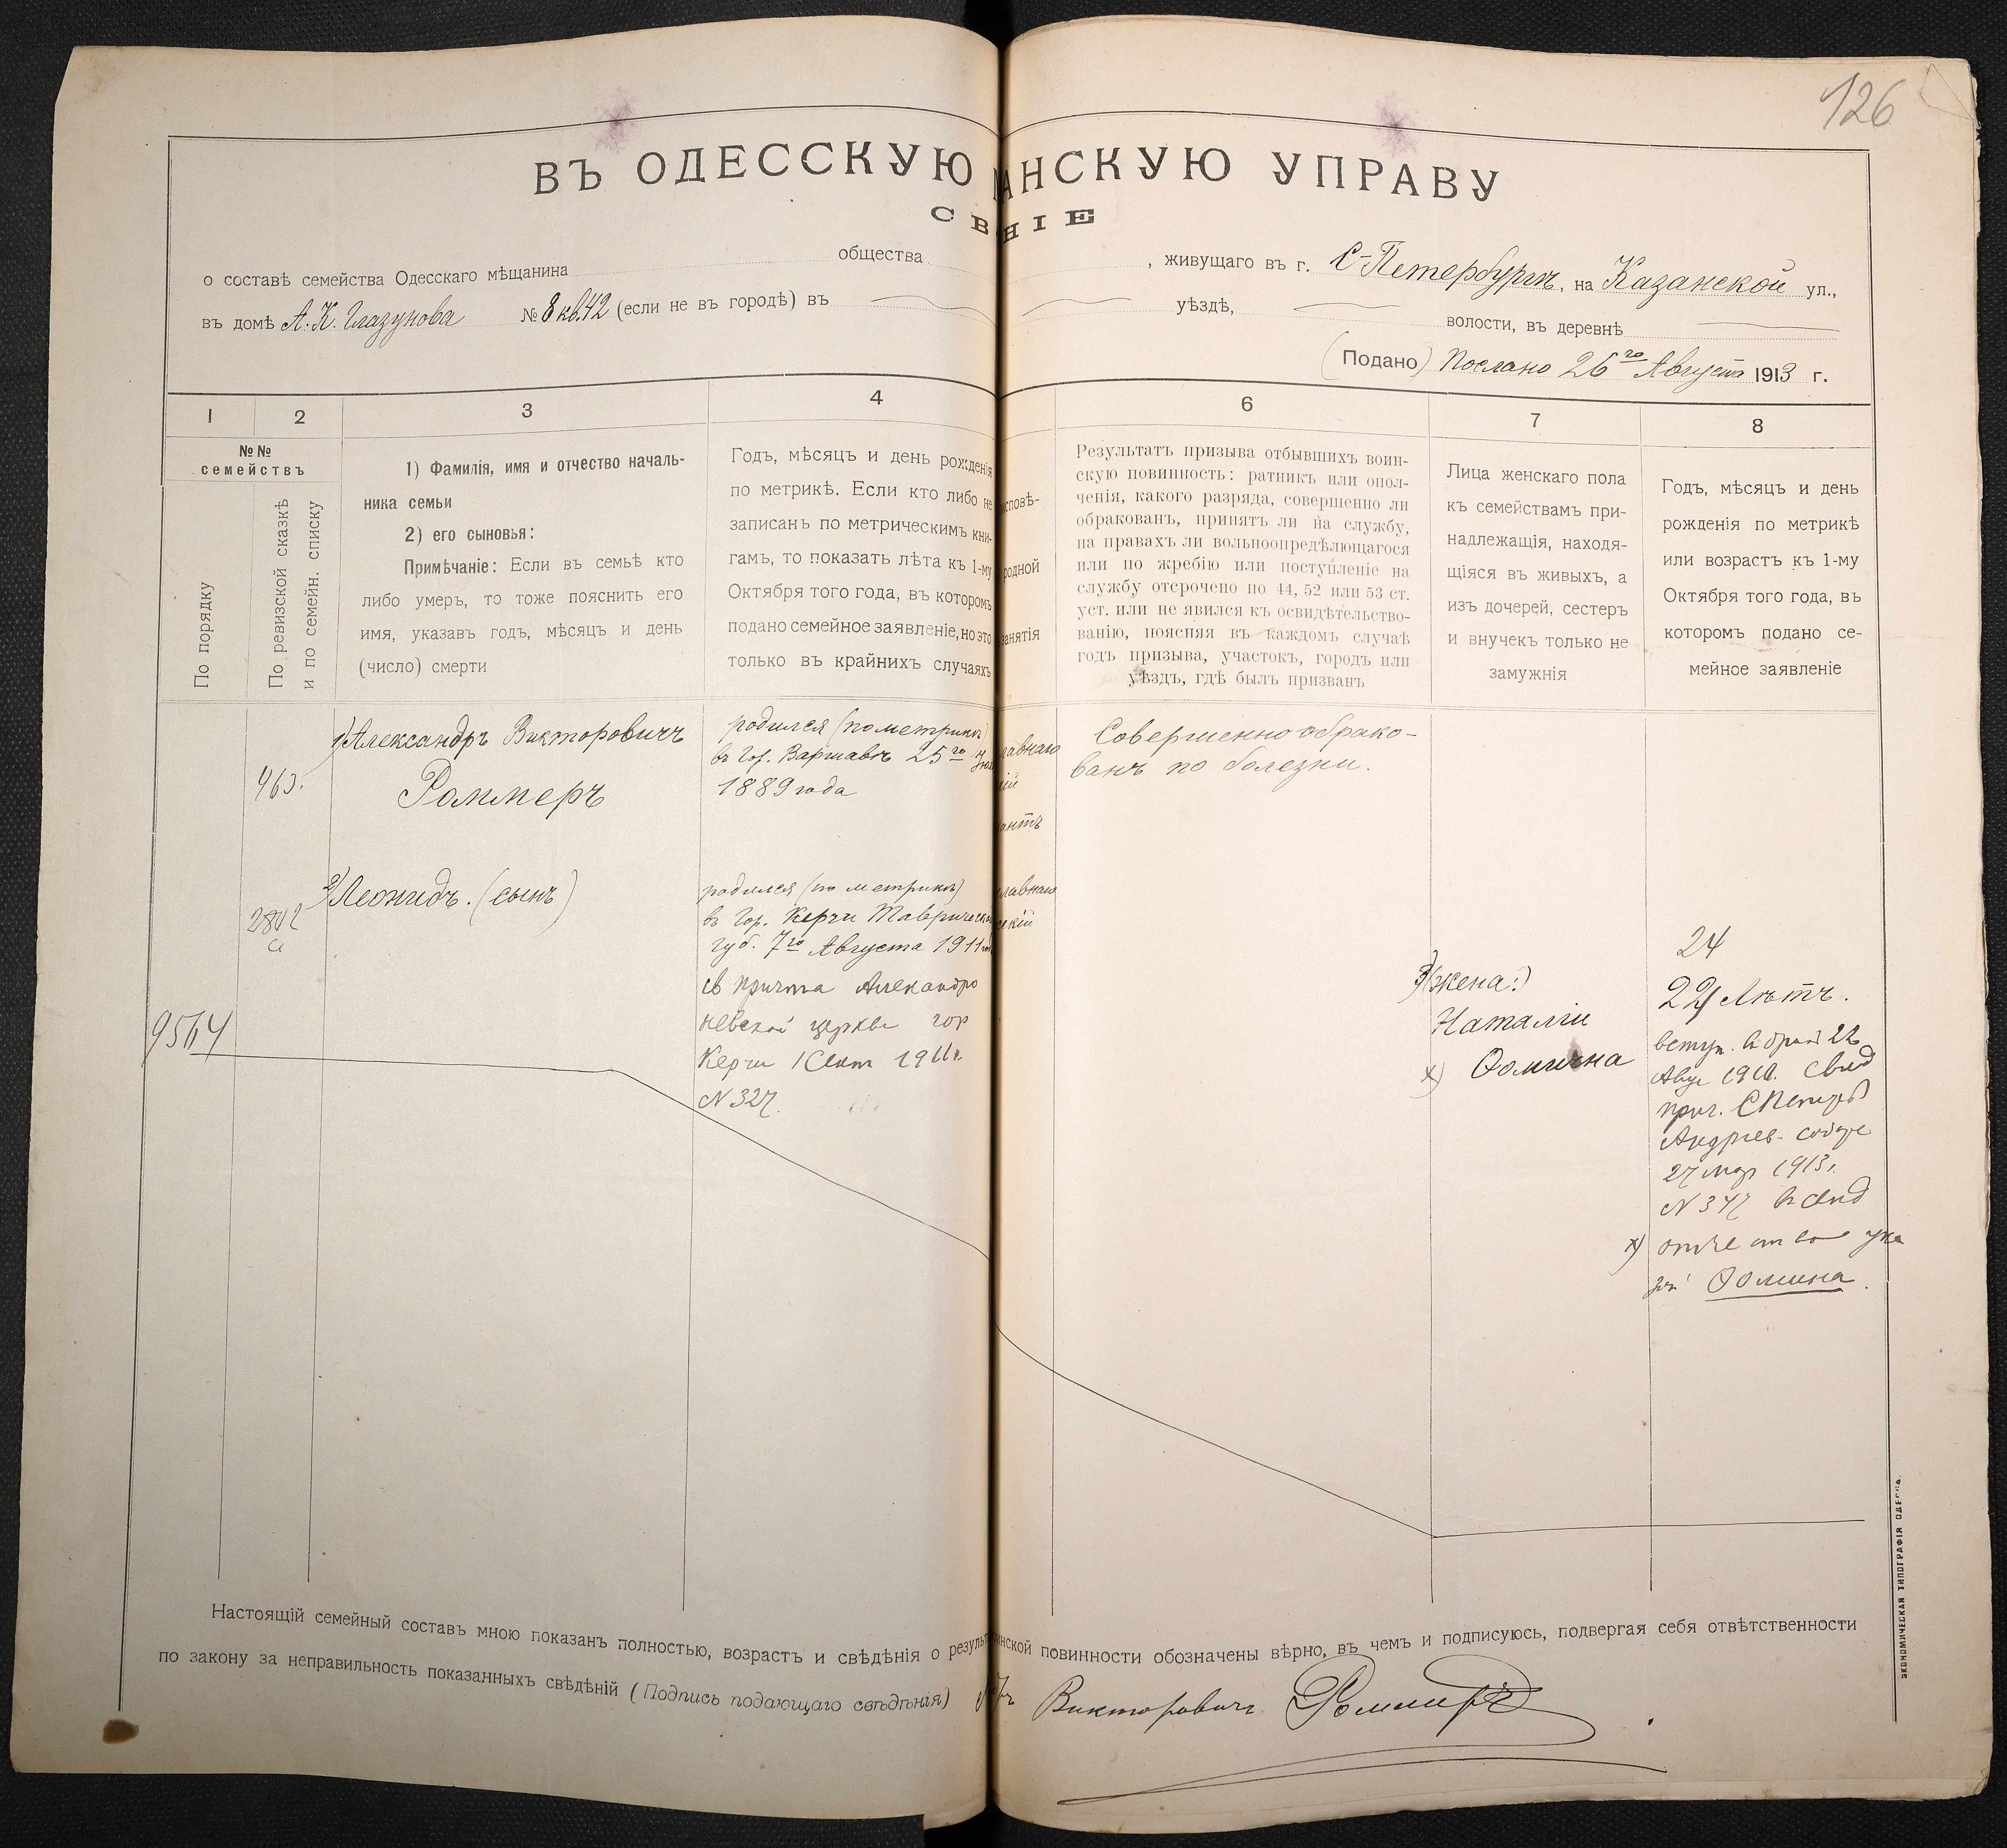 126
ВЪ ОДЕССКУЮ АНСКУЮ УПРАВУ
СВ НІЕ
о составѣ семейства Одесскаго мѣщанина общества , живущаго въ г. С-Петербургѣ, на Казанской ул.,
въ домѣ А. К. Глазунова № 8 кв. 42 (если не въ городѣ) въ уѣздѣ, волости, въ деревнѣ
(Подано) Послано 26го Августа 1913 г.
1 2 3 4 6 7 8
№№ семействъ
По порядку
По ревизской сказкѣ
и по семейн. списку
1) Фамилія, имя и отчество началь-
ника семьи
2) его сыновья:
Примѣчаніе: Если въ семьѣ кто
либо умеръ, то тоже пояснить его
имя, указавъ годъ, мѣсяцъ и день
(число) смерти
Годъ, мѣсяцъ и день рожденія
по метрикѣ. Если кто либо не
записанъ по метрическимъ кни-
гамъ, то показать лѣта къ 1-му
Октября того года, въ которомъ
подано семейное заявленіе, но это
только въ крайнихъ случаяхъ
сповѣ-
родной
занятія
Результатъ призыва отбывшихъ воин-
скую повинность: ратникъ или опол-
ченія, какого разряда, совершенно ли
обракованъ, принятъ ли на службу,
на правахъ ли вольноопредѣляющагося
или по жребію или поступленіе на
службу отсрочено по 44, 52 или 53 ст.
уст. или не явился къ освидѣтельство-
ванію, поясняя въ каждомъ случаѣ
годъ призыва, участокъ, городъ или
уѣздъ, гдѣ былъ призванъ
Лица женскаго пола
къ семействамъ при-
надлежащія, находя-
щіяся въ живыхъ, а
изъ дочерей, сестеръ
и внучекъ только не
замужнія
Годъ, мѣсяцъ и день
рожденія по метрикѣ
или возрастъ къ 1-му
Октября того года, въ
которомъ подано се-
мейное заявленіе
1) Александръ Викторовичъ
Роммеръ
463.
родился (по метрикѣ)
въ Гор. Варшавѣ 25го
1889 года
лавнаго
кій
антъ
Совершенно обрако-
ванъ по болезни.
2) Леонидъ. (сынъ)
родился (по метрикѣ)
въ Гор. Керчи Таврическ
губ. 7го Августа 1911
св причта Александро
невской церкви гор
Керчи 1 Сент 1911г.
№ 327.
славнаго
скій
9564
3) (жена:)
Наталіи
х) Ѳомична
24
22 лѣтъ.
вступ. в брак 22
Авг 1910. Свид
прич. СПетерб
Андреев. собор
27 мар 1913г.
№ 347 в свид
х) отчество ука
зан Ѳомина.
Настоящій семейный составъ мною показанъ полностью, возрастъ и свѣдѣнія о результ инской повинности обозначены вѣрно, въ чемъ и подписуюсь, подвергая себя отвѣтственности
по закону за неправильность показанныхъ свѣдѣній (Подпись подающаго свѣдѣнія) Викторовичъ Роммеръ
ЭКОНОМИЧЕСКАЯ ТИПОГРАФІЯ ОДЕССА.